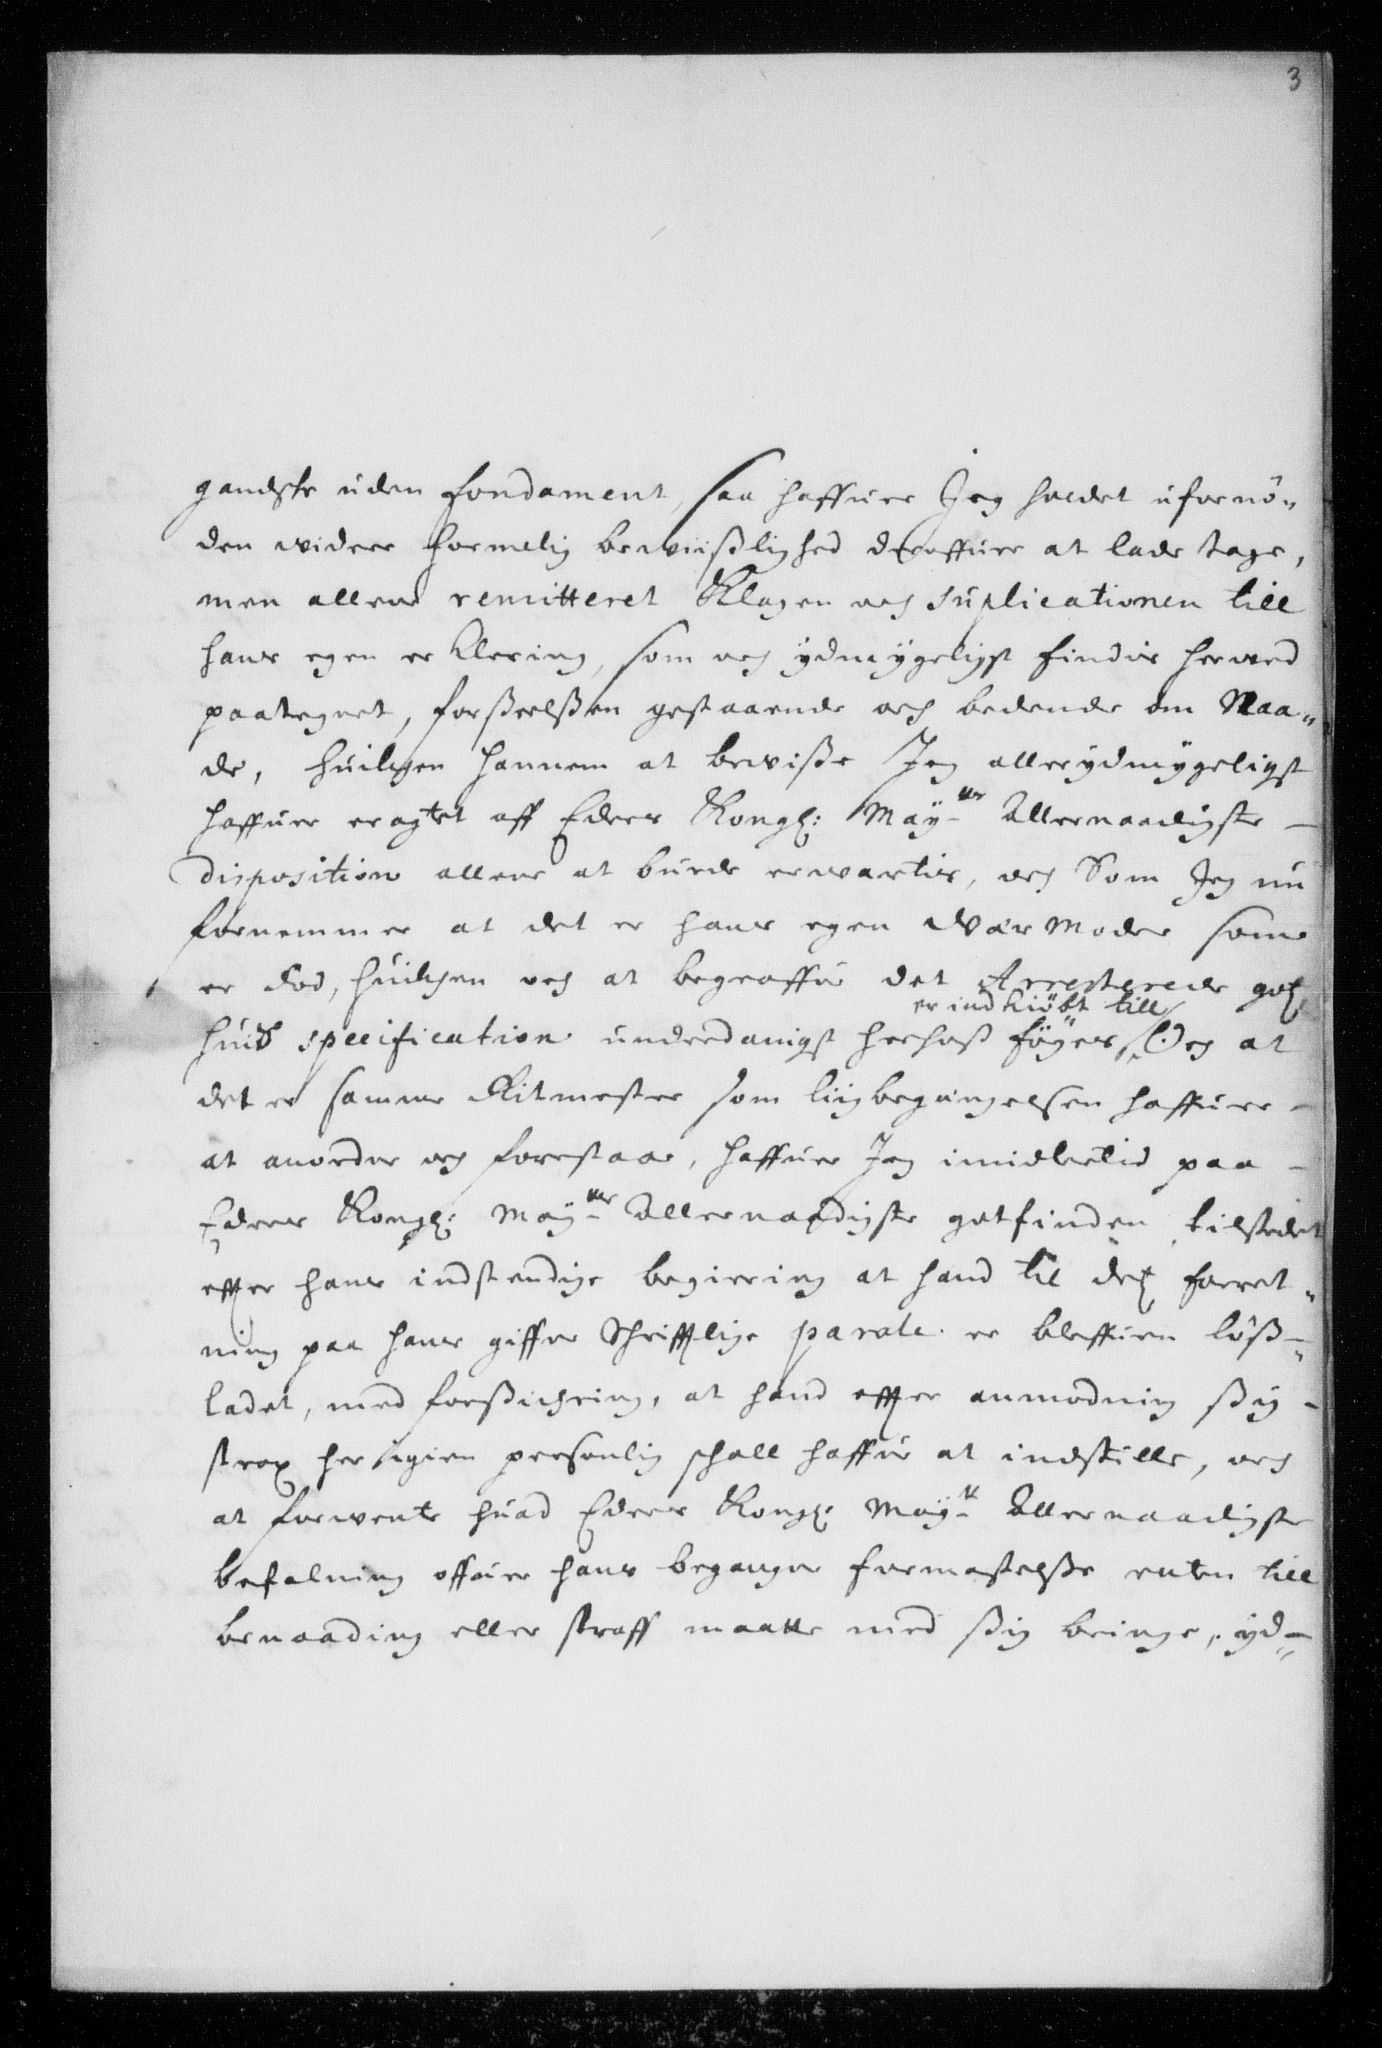 3
gandske uden fondament, saa haffuer Jeg holdet ufornö„
den widere formelig bewiißlighed deroffuer at lade tage,
men allene remitteret Klagen och Suplicationen till
hans egen erklering, som och ydmygeligst findis herwed
paategnet, forßeelßen gestaaende och bedende om Naa„
de, huilchen hannem at bewiße Jeg allerydmygeligst
haffuer eragtet aff Eders Kongl: May:ttes Allernaadigste
disposition allene at burde erwartis, och Som Jeg nu
fornemmer at det er hans egen Wærmoder som
er död, huilchen och at begraffue det Arresterede gotz
er indkiöbt till
huis specification underdanigst herhoß föyes, Og at
det er samme Ritmester som liigbegiengelsen haffuer
at anordne och forestaae, haffuer Jeg imidlertid paa
Eders Kongl: May:ttes Allernaadigste gotfinden tilstedet
effter hans indstendige begiering at hand til dets forret„
ning paa hans giffne Schrifftlige parole er bleffuen löß„
ladet, med forßichring, at hand effter anmodning ßig
strax her igien personlig schall haffue at indstille, och
at forwente huad Eders Kongl: May:tt Allernaadigste
befalning offuer hans begangne formastelße enten till
benaading eller straff maatte med ßig bringe, yd„